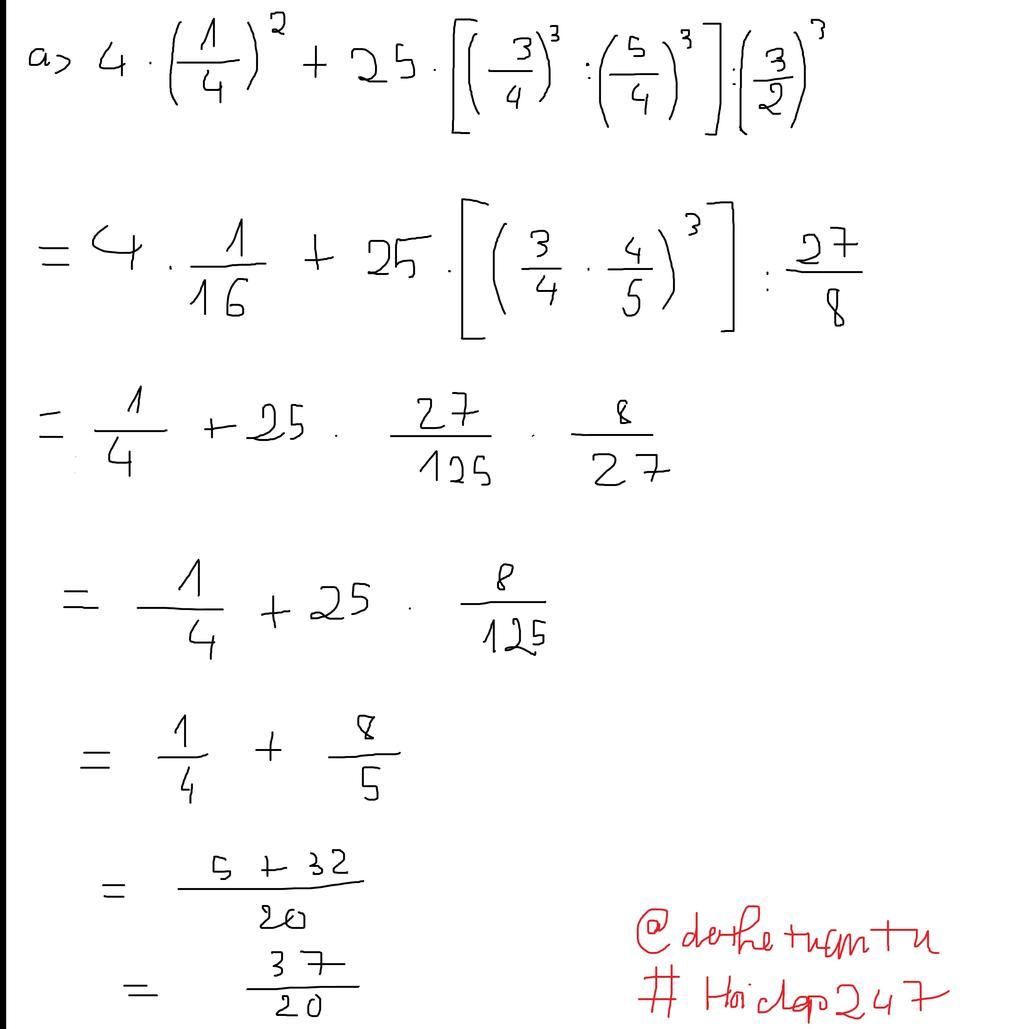 a> 4 . (1/4)^2 + 25 . [(3/4)^3 : (5/4)^3] : (3/2)^3
= 4 . 1/16 + 25 . [(3/4 . 4/5)^3] : 27/8
= 1/4 + 25 . 27/125 . 8/27
= 1/4 + 25 . 8/125
= 1/4 + 8/5
= 5 + 32/20
= 37/20
@dothetuantu
# Hoidap247